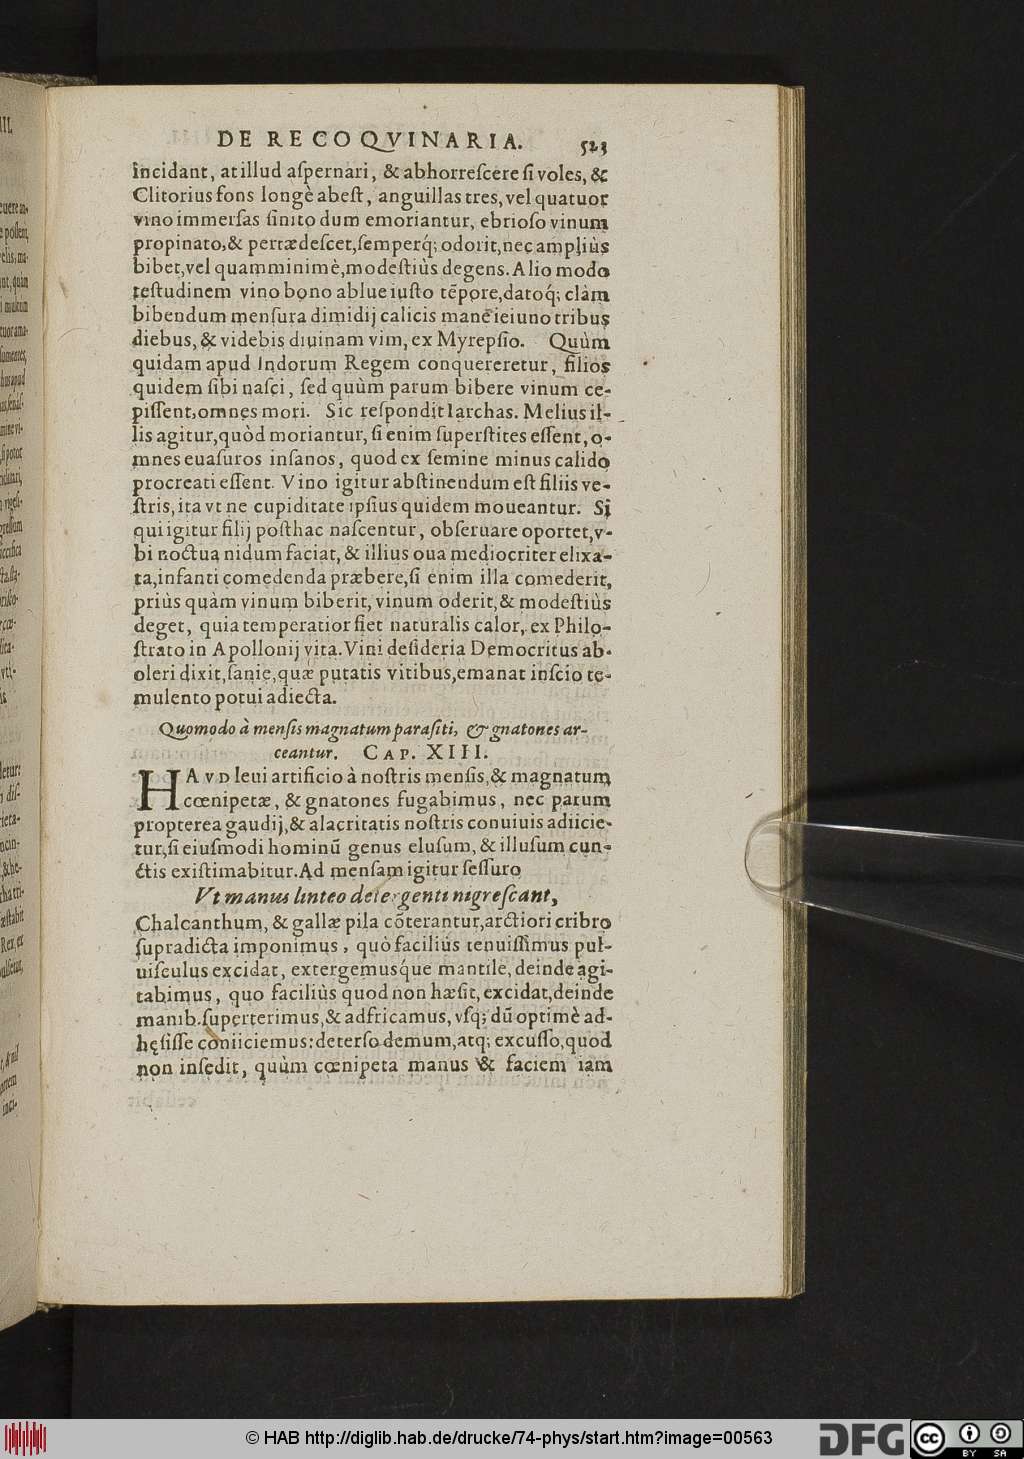 DE RE COQVINARIA. 523
incidant, at illud aſpernari, & abhorreſcere ſi voles, &
Clitorius fons longè abeſt, anguillas tres, vel quatuor
vino immerſas ſinito dum emoriantur, ebrioſo vinum
propinato, & pertædeſcet, ſemperq́; odorit, nec ampliùs
bibet, vel quam minimè, modeſtiùs degens. Alio modo
teſtudinem vino bono ablue iuſto tẽpore, datoq́; clàm
bibendum menſura dimidij calicis manè ieiuno tribus
diebus, & videbis diuinam vim, ex Myrepſio. Quùm
quidam apud Indorum Regem conquereretur, filios
quidem ſibi naſci, ſed quùm parum bibere vinum ce-
piſſent, omnes mori. Sic reſpondit Iarchas. Melius il-
lis agitur, quòd moriantur, ſi enim ſuperſtites eſſent, o-
mnes euaſuros inſanos, quod ex ſemine minus calido
procreati eſſent. Vino igitur abſtinendum eſt filiis ve-
ſtris, ita vt ne cupiditate ipſius quidem moueantur. Si
qui igitur filij poſthac naſcentur, obſeruare oportet, v-
bi noctua nidum faciat, & illius oua mediocriter elixa-
ta, infanti comedenda præbere, ſi enim illa comederit,
priùs quàm vinum biberit, vinum oderit, & modeſtiùs
deget, quia temperatior fiet naturalis calor, ex Philo-
ſtrato in Apollonij vita. Vini deſideria Democritus ab-
oleri dixit, ſanie, quæ putatis vitibus, emanat inſcio te-
mulento potui adiecta.
Quomodo à menſis magnatum paraſiti, & gnatones ar-
ceantur. CAP. XIII.
HAVD leui artificio à noſtris menſis, & magnatum
cœnipetæ, & gnatones fugabimus, nec parum
propterea gaudij, & alacritatis noſtris conuiuis adiicie-
tur, ſi eiuſmodi hominũ genus eluſum, & illuſum cun-
ctis exiſtimabitur. Ad menſam igitur ſeſſuro
Vt manus linteo detergenti nigreſcant,
Chalcanthum, & gallæ pila cõterantur, arctiori cribro
ſupradicta imponimus, quò faciliús tenuiſſimus pul-
uiſculus excidat, extergemuſq́ue mantile, deinde agi-
tabimus, quo faciliùs quod non hæſit, excidat, deinde
manib. ſuperterimus, & adfricamus, vſq; dũ optimè ad-
hęſiſſe coniiciemus: deterſo demum, atq; excuſſo, quod
non inſedit, quùm cœnipeta manus & faciem iam
© HAB http://diglib.hab.de/drucke/74-phys/start.htm?image=00563
DFG
cc BY SA